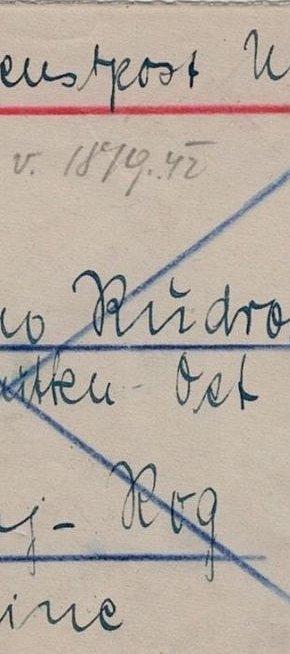 enstpost U
v. 18/9.42
no Rudro
itten - Ost
j - Rog
ine